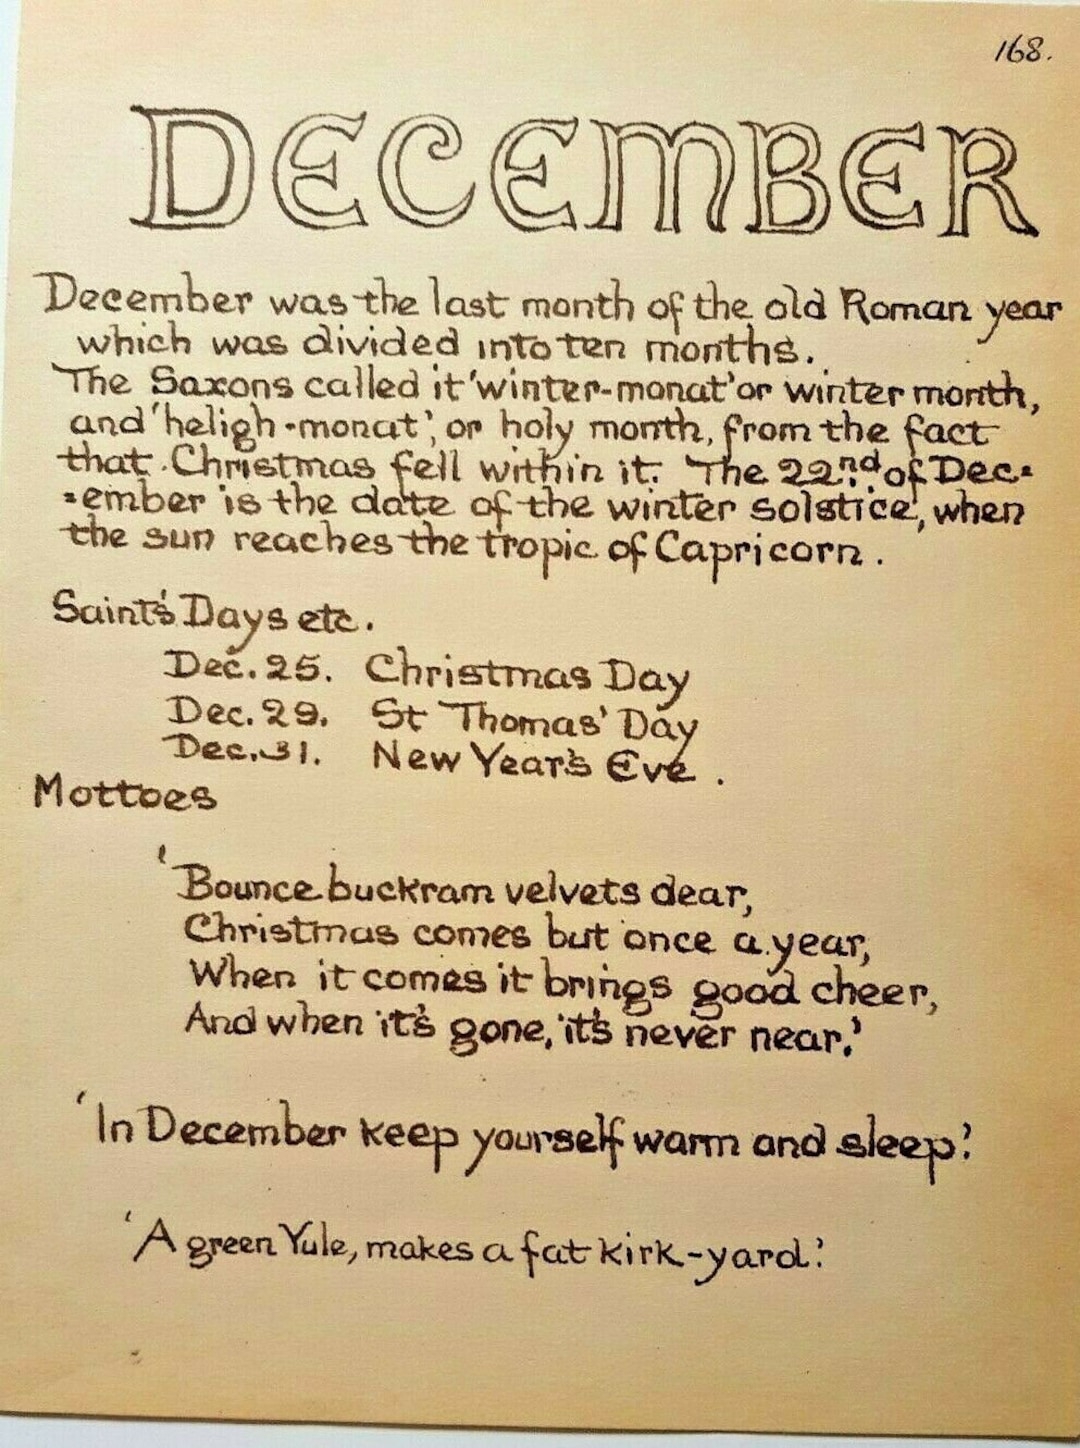 168.
DECEMBER
December was the last month of the old Roman year
which was divided into ten months.
The Saxons called it 'winter-monat' or winter month,
and 'heligh-monat', or holy month, from the fact
that Christmas fell within it. The 22nd. of Dec=
=ember is the date of the winter solstice, when
the sun reaches the tropic of Capricorn.
Saint's Days etc.
Dec. 25. Christmas Day
Dec. 29. St Thomas' Day
Dec. 31. New Year's Eve.
Mottoes
'Bounce buckram velvets dear,
Christmas comes but once a year,
When it comes it brings good cheer,
And when it's gone, it's never near.'
'In December keep yourself warm and sleep.'
'A green Yule, makes a fat kirk-yard.'